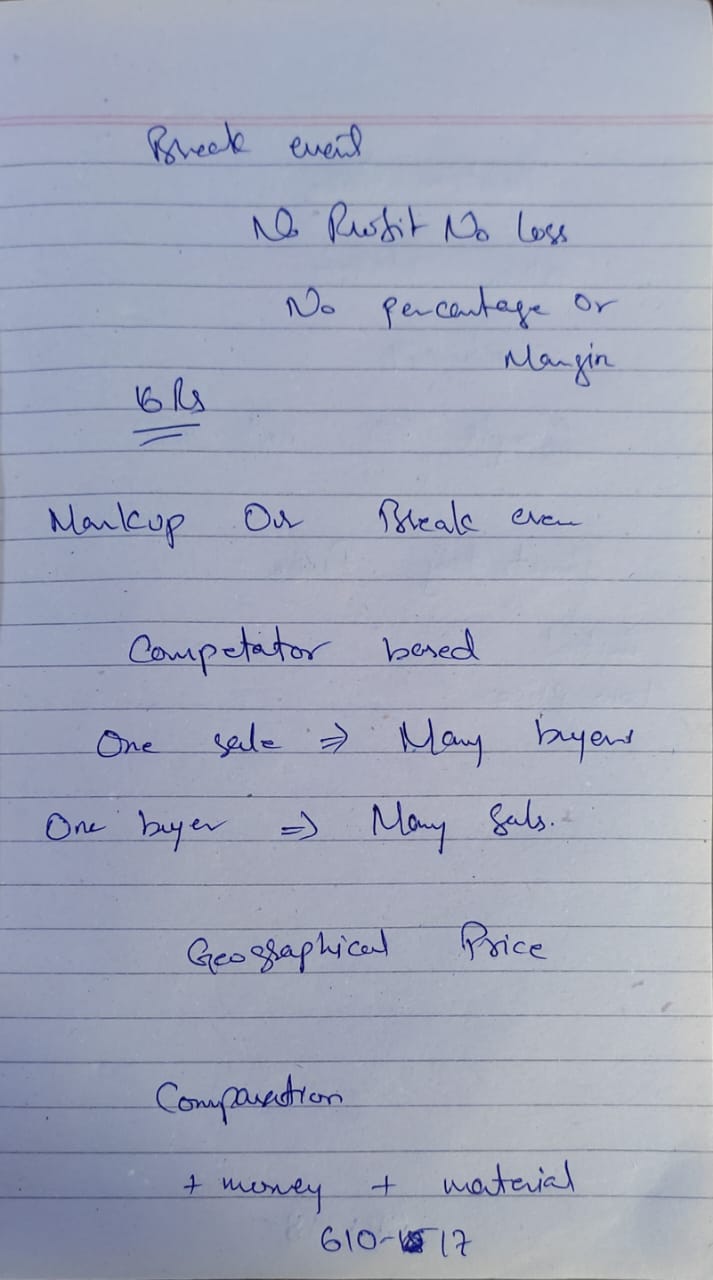 Break event
No Profit No loss
No percentage or
Margin
16 Rs
Markup Or Break even
Competator based
One sale ⇒ Many buyers
One buyer ⇒ Many Sals.
Geographical Price
Comparation
+ money + material
610-17